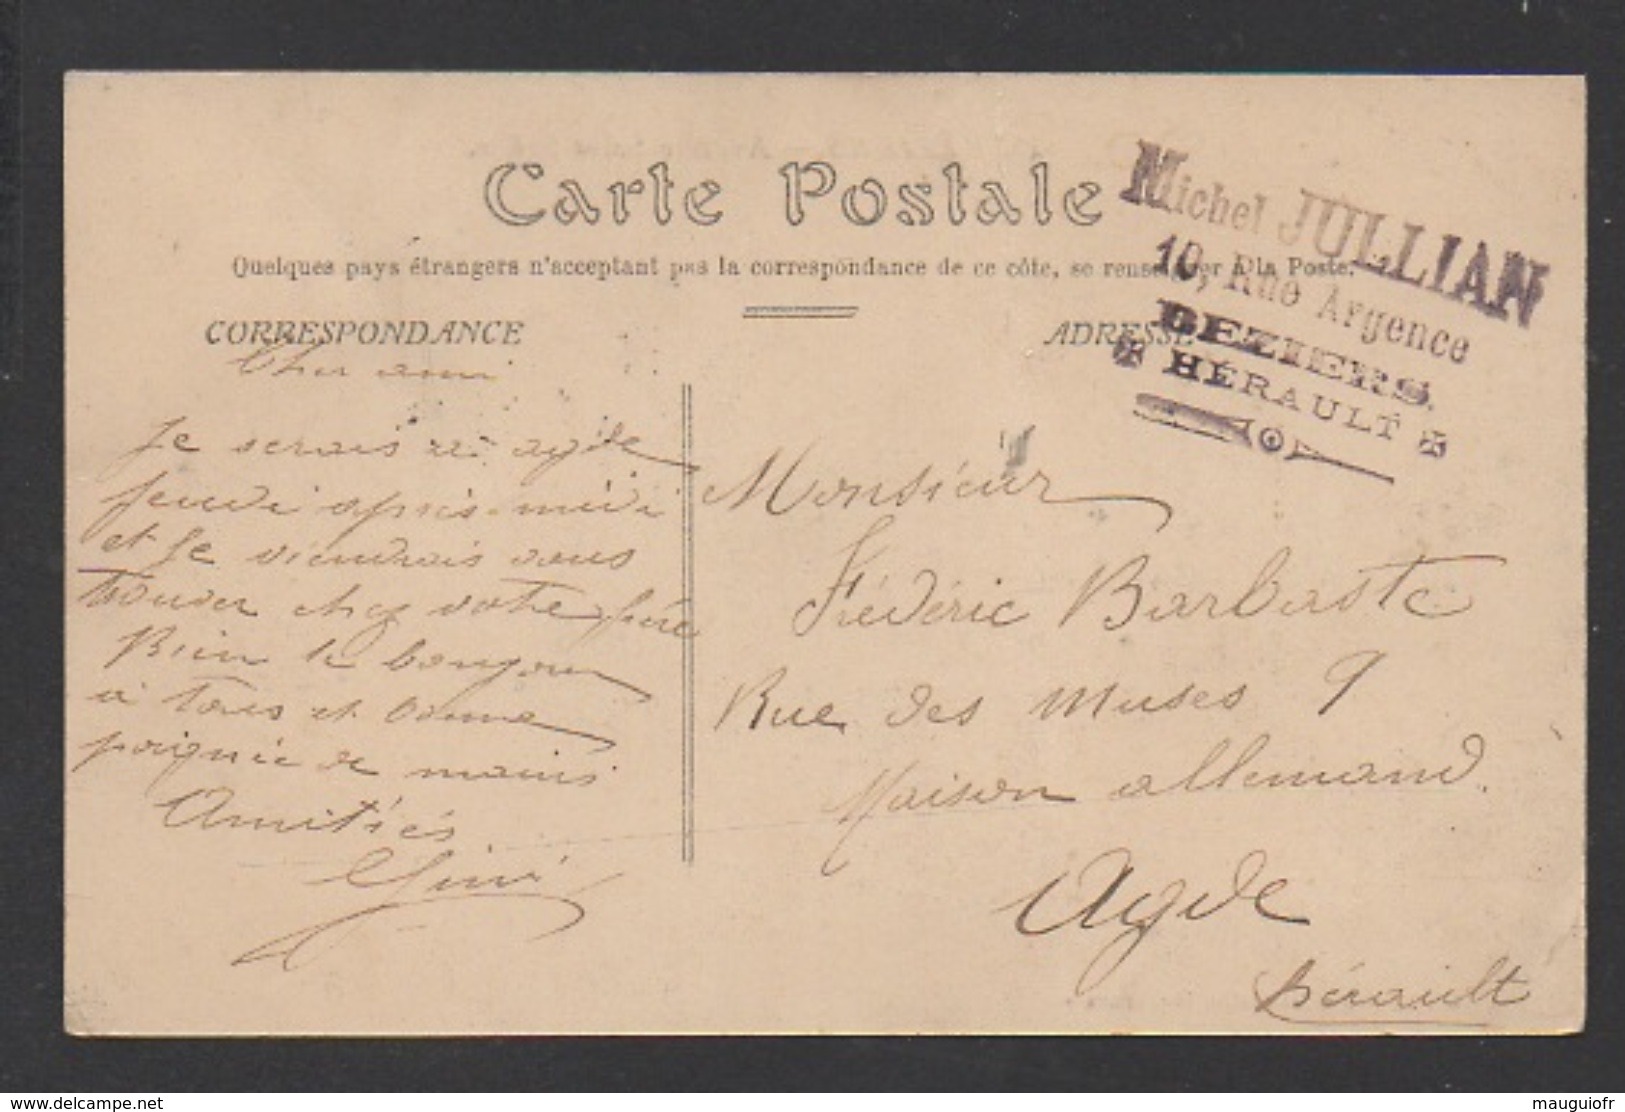 Carte Postale
Quelques pays étrangers n'acceptant pas la correspondance de ce côte, se renseigner à la Poste.
CORRESPONDANCE
ADRESSE
Michel JULLIAN
10, Rue Argence
BEZIERS.
HÉRAULT
Cher ami
Je serais a agde
jeudi après-midi
et je viendrais vous
trouver chez votre père
Bien le bonjour
a tous et bonne
poignée de mains
Amitiés
Monsieur
Frédéric Barbaste
Rue des Muses 9
Maison allemand.
Agde
hérault
www.delcampe.net
mauguiofr